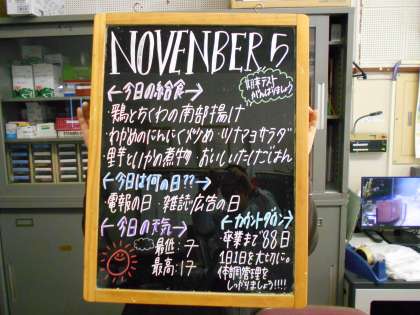 NOVENBER 5
期末テスト
がんばりましょう
←今日の給食→
・鶏とちくわの南部揚げ
・わかめのにんにく炒め・ツナマヨサラダ
・里芋といかの煮物・おいしいたけごはん
←今日は何の日??→
・電報の日・雑誌広告の日
←今日の天気→
最低:7
最高:17
←カウントダウン→
卒業まで88日
1日1日を大切に。
体調管理を
しっかりしましょう!!!!